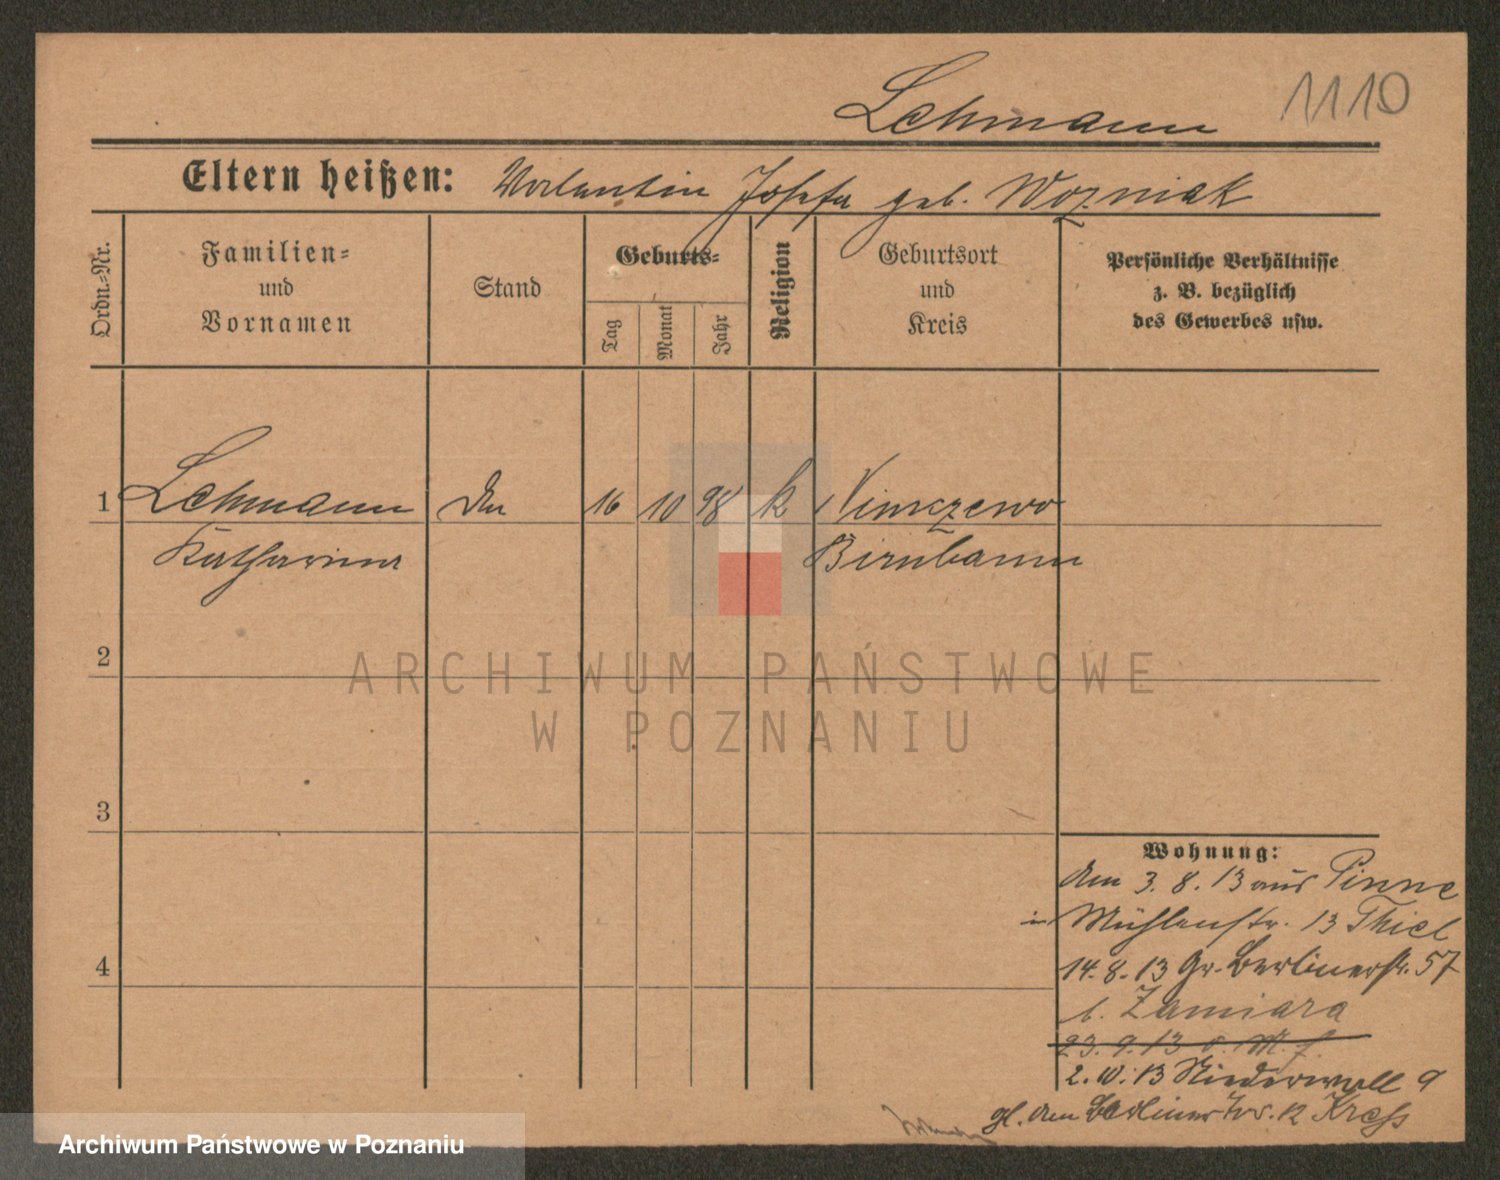 Lehmann 1110
Eltern heißen: Valentin Josefa geb. Wozniak
Ordn.-Nr.
Familien-
und
Vornamen
Stand
Geburts-
Tag
Monat
Jahr
Religion
Geburtsort
und
Kreis
Persönliche Verhältnisse
z. B. bezüglich
des Gewerbes usw.
1 Lehmann 16 10 98 k
Katharina Birnbaum
2
3
4
Wohnung:
den 3. 8. 13 aus Pinne
in Mühlenstr. 13 Thiel
14. 8. 13 Gr. Berlinerstr. 57
b. Zamiara
23. 9. 13
2. 10. 13 Niederwall 9
12 Kress
ARCHIWUM PAŃSTWOWE
W POZNANIU
Archiwum Państwowe w Poznaniu